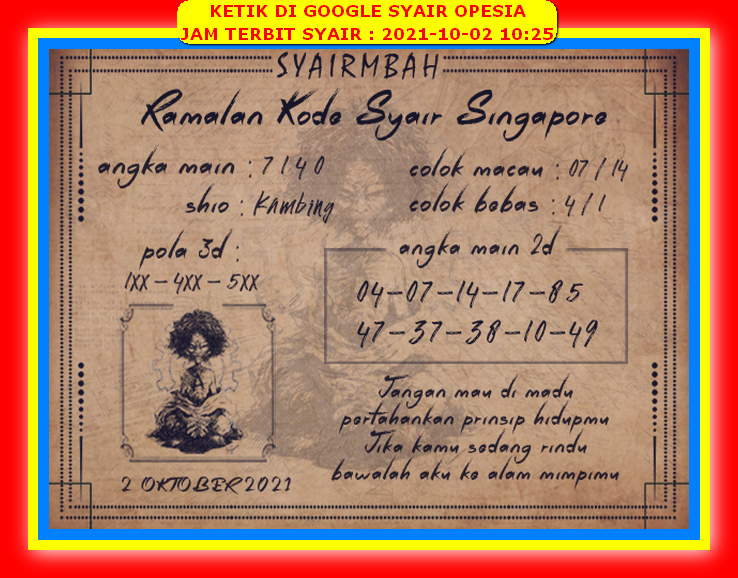 KETIK DI GOOGLE SYAIR OPESIA
JAM TERBIT SYAIR : 2021-10-02 10:25
SYAIRMBAH
Ramalan Kode Syair Singapore
angka main : 7 1 4 0
colok macau : 07 / 14
shio : Kambing
colok bebas : 4 / 1
pola 3d :
1XX - 4XX - 5XX
angka main 2d
04-07-14-17-85
47-37-38-10-49
Jangan mau di madu
pertahankan prinsip hidupmu
Jika kamu sedang rindu
bawalah aku ke alam mimpimu
2 OKTOBER 2021